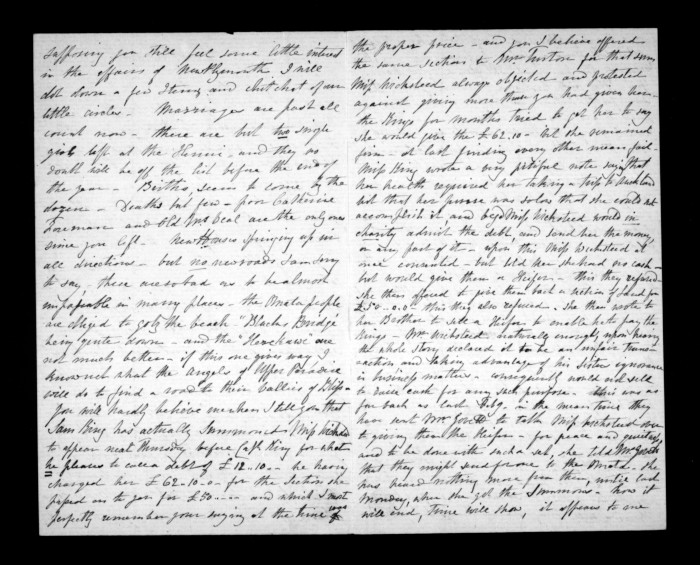 supposing you still feel some little interest
in the affairs of New Plymouth I will
dot down a few Items and chit chat of our
little circles - Marriages are past all
count now - there are but two single
girls left at the Henui - and they no
doubt will be off the list before the end of
the year - Births, seem to come by the
dozen - Deaths but few - poor Catherine
and Old Mrs Veal are the only ones
since you left - New Houses springing up in
all directions - but no new roads I am sorry
to say, these are so bad as to be almost
impassable in many places - the Omata people
are obliged to go by the beach "Blacks Bridge
being quite down - and the Henui are
not much better - if this one gives way I
know not what the angels of Upper Paradise
will do to find a road to their Vallies of Bliss -
You will hardly believe me when I tell you that
Sam King has actually Summoned Miss Wicksteed
to appear next Thursday before Capt King for what
he pleases to call a debt of £12.10 - he having
charged her £62-10-0 for the Section she
passed on to you for £50 - and which I most
perfectly remember your saying at the time was
the proper price - and you I believe offered
the same sections to Mr Turton for that sum
Miss Wicksteed always objected and protested
against giving more than you had given her -
the Kings for months tried to get her to say
she would give the £62.10 - but she remained
firm - at last finding every other means fail -
Miss King wrote a very pitiful note saying that
her health required her taking a trip to Auckland
but that her purse was so low that she could not
accomplish it, and begd Miss Wicksteed would in
charity admit the debt, and send her the money,
or any part of it - upon this Miss Wicksteed at
once consented - but told her she had no cash -
but would give them a Heifer - this they refused -
she then offered to give them back a section of Land for
£50-0-0 this they also refused. She then wrote to
her Brother to sell a Heifer to enable her to pay the
Kings - Mr Wicksteed naturally enough, upon hearing
the whole story declared it to be an unfair trans-
action and taking advantage of his Sisters ignorance
in business matters - consequently would not sell
to raise cash for any such purpose - this was as
far back as last Feby - in the mean time they
have sent Mr to talk Miss Wicksteed over
to giving them the Heifer - for peace and quietness,
and to be done with such a set, she told Mr
that they might send for one to the Omata - she
has heard nothing more from them, until last
Monday, when she got the Summons - how it
will end, time will show, it appears to me